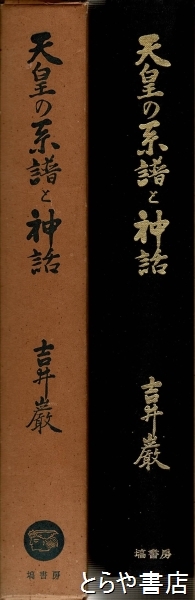 天皇の系譜と神話
吉井巖
塙書房
天皇の系譜と神話
吉井巖
塙書房
とらや書店